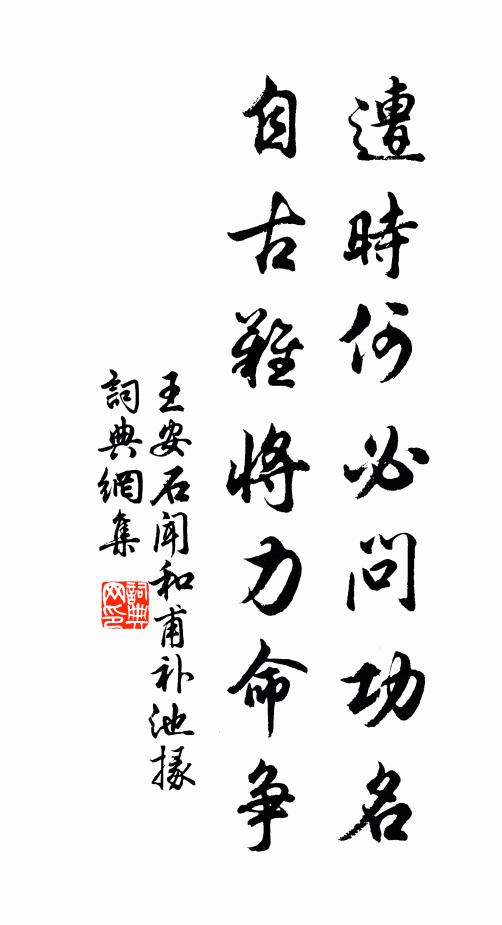 遭時何必問功名
自古難將力命爭
王安石聞和甫补池掾
詞典網集
詞典网印